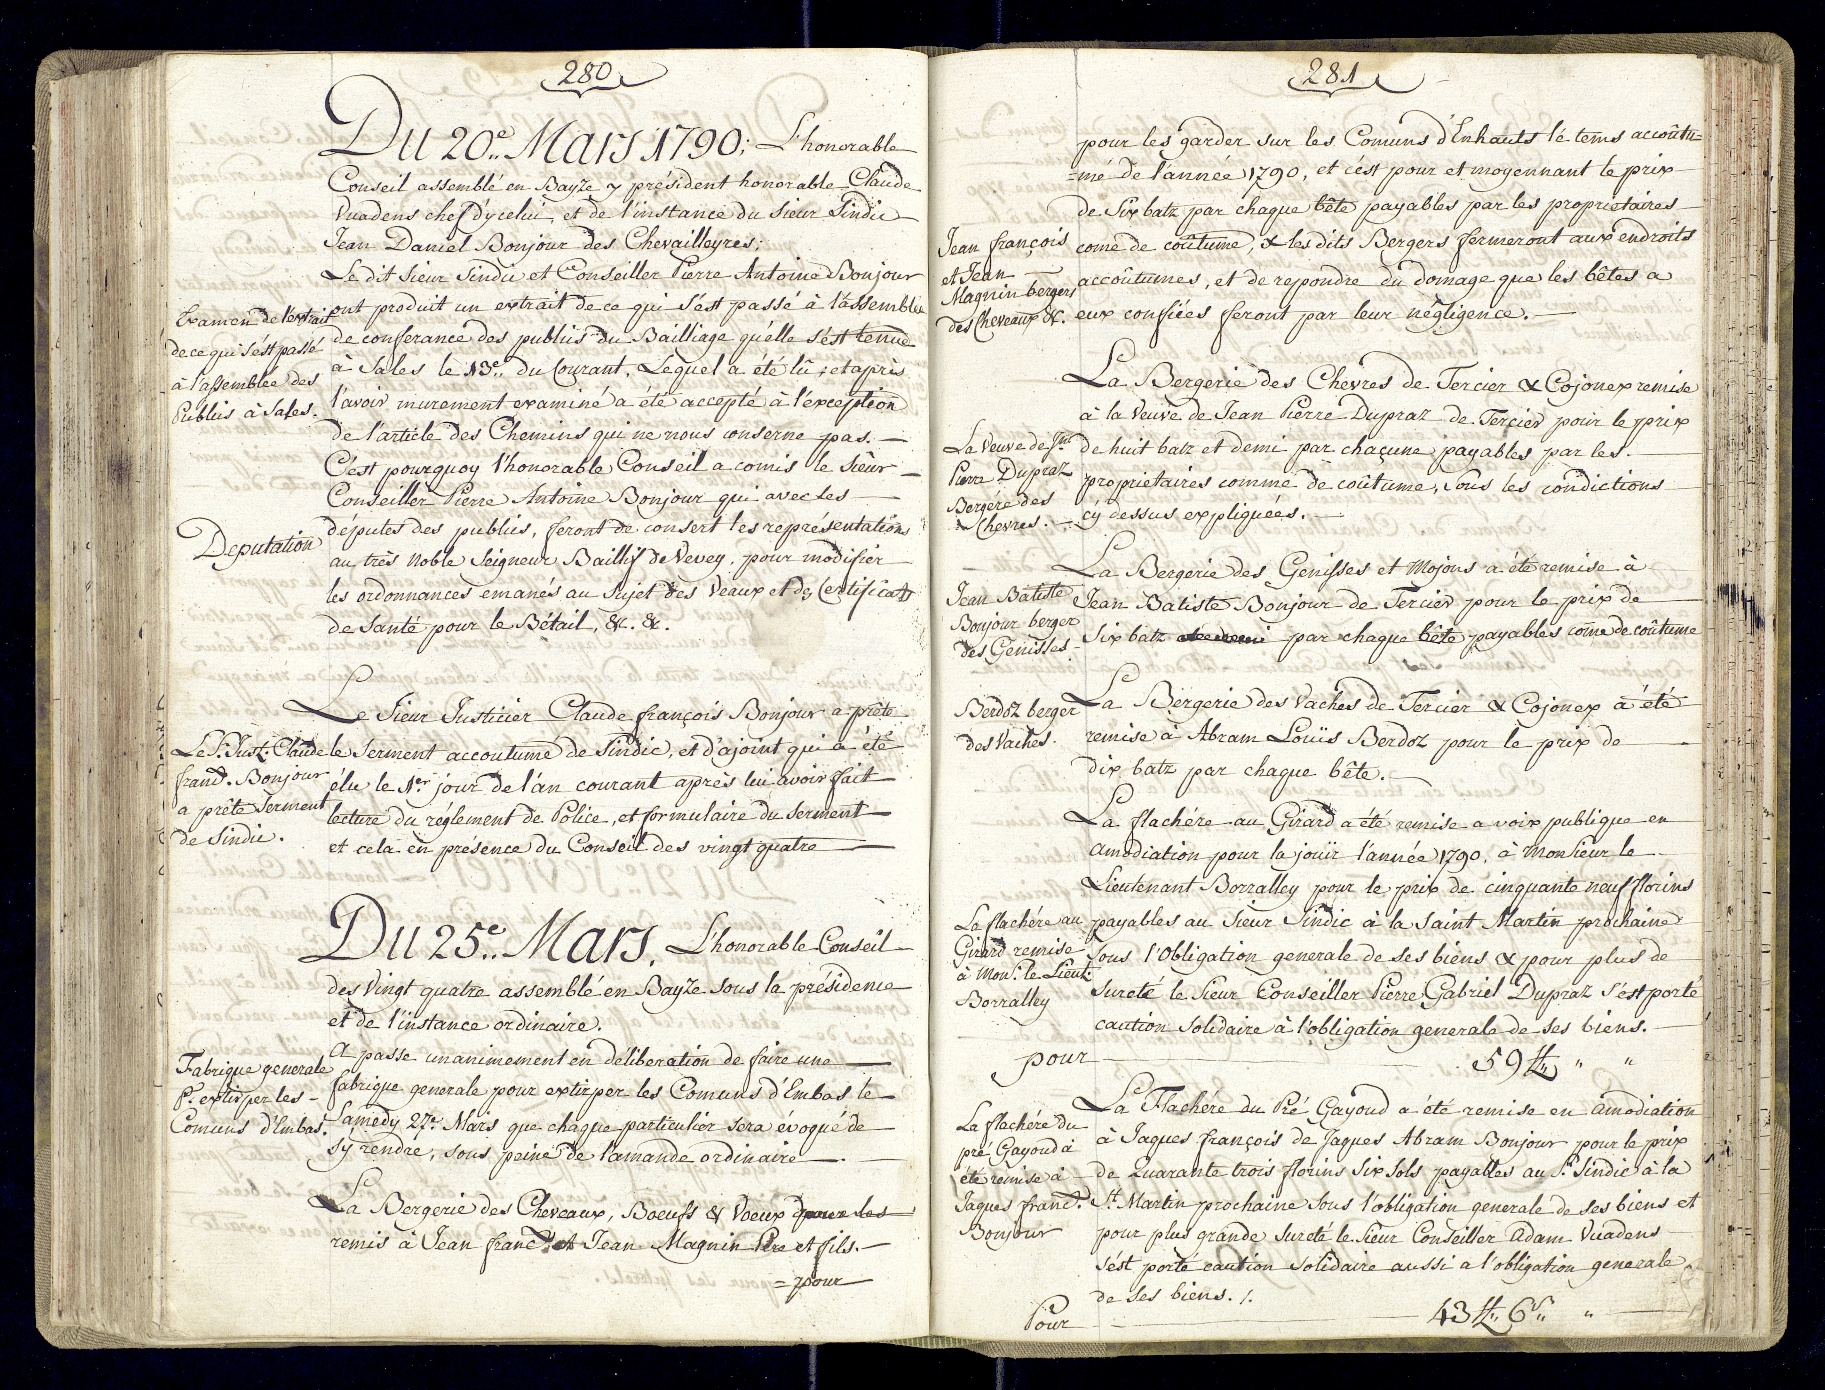 280
Du 20e.. Mars 1790; L'honorable
Conseil assemblé en Bayze y président honorable Claude
Vuadens chef d'ycelui, et de l'instance du Sieur Sindic
Jean Daniel Bonjour des Chevailleyres;
Le dit Sieur Sindic et Conseiller Pierre Antoine Bonjour
Examen de l'extrait
de ce qui s'ést passé
à l'assemblée des
Publics à Sales.
ont produit un extrait de ce qui s'ést passé à l'assemblée
de conferance des publics du Bailliage qu'elle s'ést tenue
à Sales le 13e.. du Courant, Léquel a été lû, et après
l'avoir murement examiné a été accepté à l'éxception
de l'article des Chemins qui ne nous conserne pas. —
C'est pourquoy l'honorable Conseil a comis le Siéur —
Conseiller Pierre Antoine Bonjour qui avec les —
Deputation
députés des publics, feront de consert les représentations
au très Noble Seigneur Baillif de Vevey, pour modifier
les ordonnances émanés au Sujet des Veaux et des Certificats
de Santé pour le Bétail, &c. &c.
Le Sieur Justicier Claude françois Bonjour a prêté
Le Sr. Just: Claude
franc̃. Bonjour
a prêté Serment
de Sindic.
le Serment accoutumé de Sindic, et d'ajoint qui a été
élu le 1er jour de l'án courant après lui avoir fait
lecture du réglement de Police, et formulaire du serment
et cela en présence du Conseil des vingt quatre —
Du 25e.. Mars, L'honorable Conseil
des Vingt quatre assemblé en Bayze sous la présidence
et de l'instance ordinaire.
Fabrique generale
Pr. extirper les –
Comuns d'Embas.
A passé unanimement en délibération de faire une —
fabrique generale pour extirper les Comuns d'Embas le
Samedy 27e. Mars que chaque particulier sera évoqué de
s'y rendre, sous peine de l'amande ordinaire. —
La Bergerie des Cheveaux, Boeufs & Voeux pour les
remis à Jean franc̃. et Jean Magnin Père et fils. —
= pour
281
pour les garder sur les Comuns d'Enhauts lé tems accoûtu=
=mé de l'année 1790, et c'ést pour et moyennant le prix
de Six batz par chaque bête payables par les propriétaires
Jean françois
et Jean
Magnin bergers
des Cheveaux &c.
come de coûtume, & les dits Bergers fermeront aux endroits
accoûtumés, et de repondre du domage que les bêtes a
eux confiées feront par leur négligence. —
La Bergerie des Chevres de Tercier & Cojonex remise
à la Veuve de Jean Pierre Dupraz de Tercier pour le prix
La Veuve de Jn.
Pierre Dupraz
Bergére des
Chevres. –
de huit batz et demi par chaçune payables par les. —
proprietaires comme de coûtume, sous lés condictions
cÿ dessus expliquées. —
La Bergerie des Genisses et Mojons a été remise à
Jean Batiste
Bonjour berger
des Génisses –
Jean Batiste Bonjour de Tercier pour le prix de
Six batz par chaque bête payables come de coûtume
Berdoz berger
des Vaches.
La Bergerie des Vaches de Tercier & Cojonex a été
remise à Abram Loüis Berdoz pour le prix de
dix batz par chaque bête. —
La flachére au Girard a été remise a voix publique en
amodiation pour la joüir l'année 1790, à Monsieur le
Lieutenant Borralley pour le prix de cinquante neuf florins
La flachére au
Girard remise
à Monr. le Lieut:
Borralley
payables au Sieur Sindic à la Saint Martin prochaine
Sous l'Obligation generale de ses biens & pour plus de
Sureté le Sieur Conseiller Pierre Gabriel Dupraz s'ést porté
caution solidaire à l'obligation generale de ses biens. —
pour — 59 fl,, " "
La Flachére du Pré Gayoud a été remise en amodiation
La flachére du
pré Gayoud à
été remise à
Jaques franc̃.
Bonjour
à Jaques françois de Jaques Abram Bonjour pour le prix
de Quarante trois florins Six sols payables au Sr. Sindic à la
St. Martin prochaine Sous l'obligation generale de ses biens et
pour plus grande Sureté le Sieur Conseiller Adam Vuadens
s'ést porté caution solidaire aussi a l'obligation generale
de ses biens. /.
Pour — 43 fl,, 6s,, "